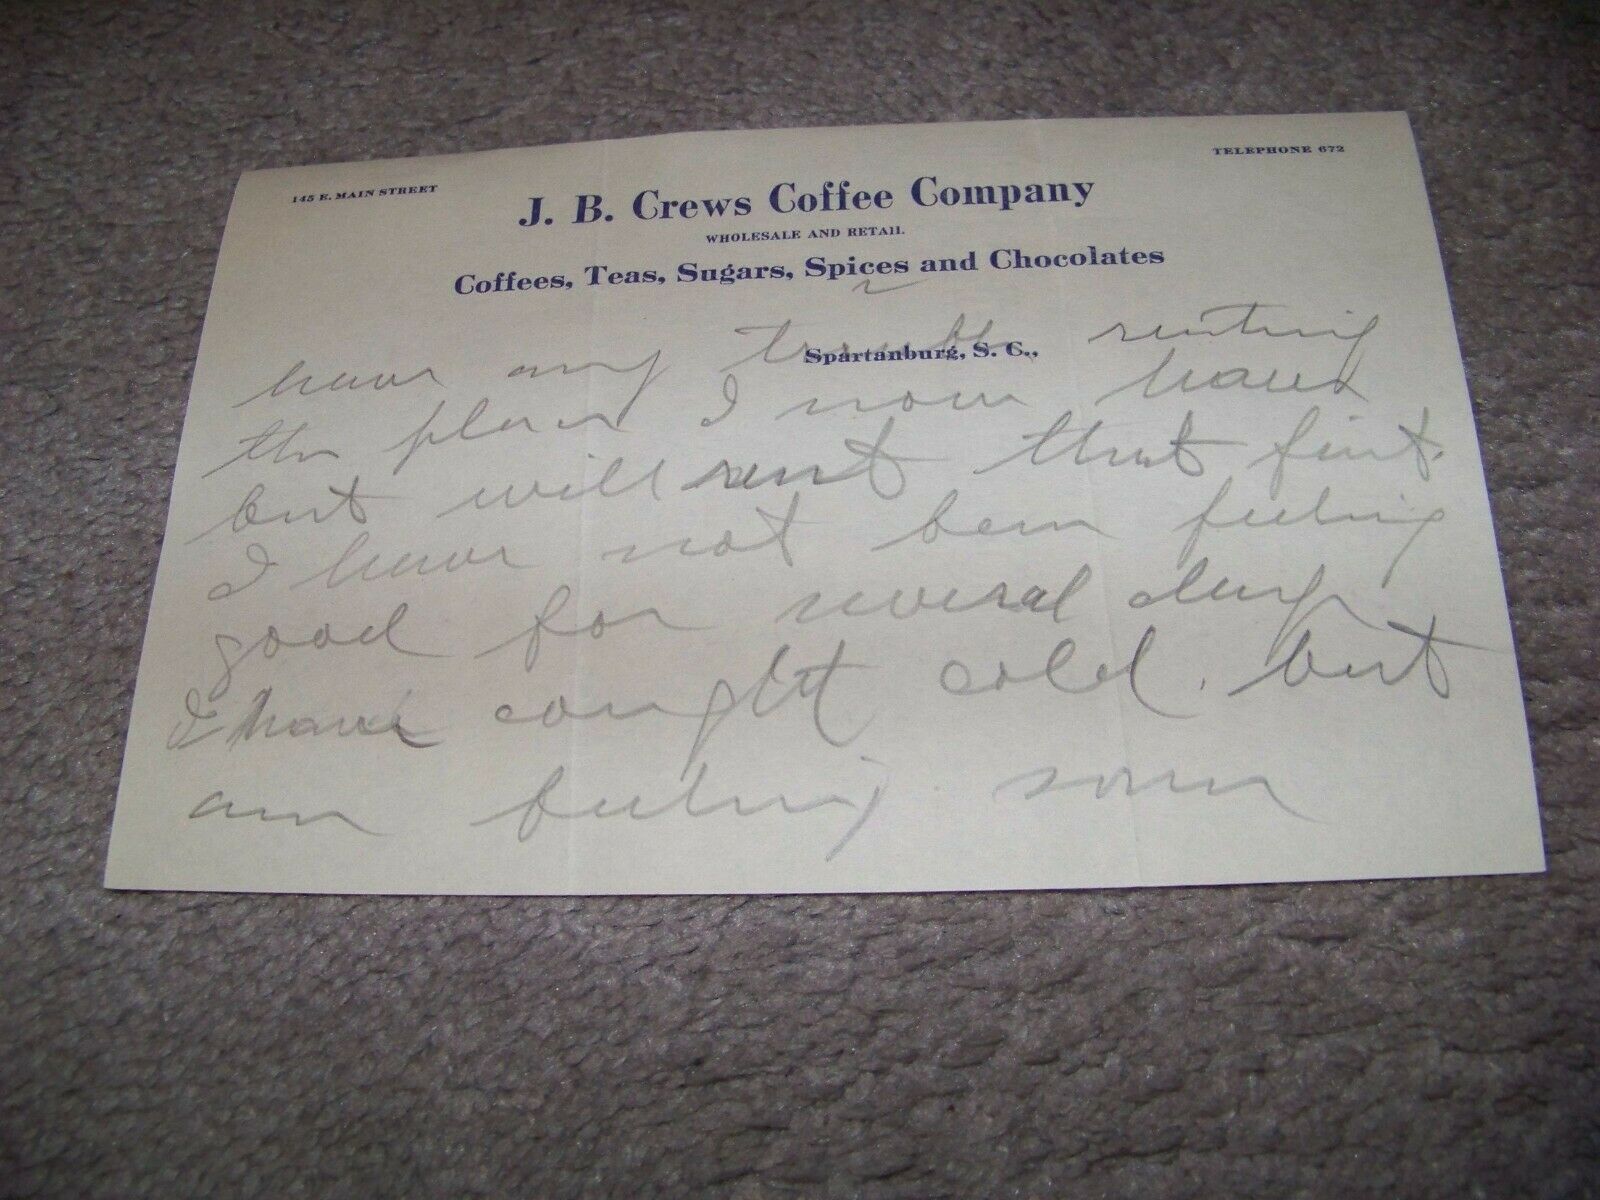 145 E. MAIN STREET
TELEPHONE 672
J. B. Crews Coffee Company
WHOLESALE AND RETAIL
Coffees, Teas, Sugars, Spices and Chocolates
2
Spartanburg, S. C.,
have any trouble renting
the place I now have
but will rent that first.
I have not been feeling
good for several days
I have caught cold. but
am feeling some